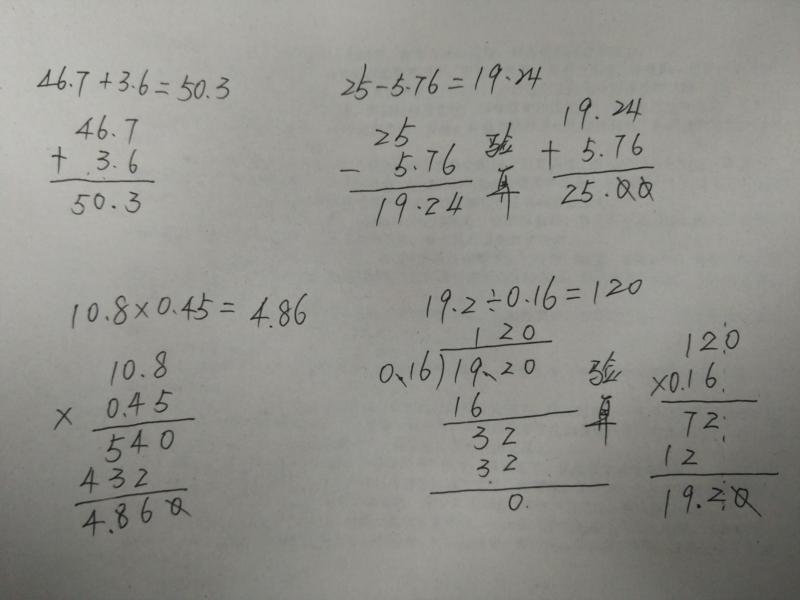 46.7+3.6=50.3
46.7
+ 3.6
50.3
25-5.76=19.24
25
- 5.76
19.24
验算
19.24
+ 5.76
25.00
10.8×0.45=4.86
10.8
× 0.45
540
432
4.860
19.2÷0.16=120
120
0.16)19.20
16
32
32
0
验算
120
×0.16
72
12
19.20